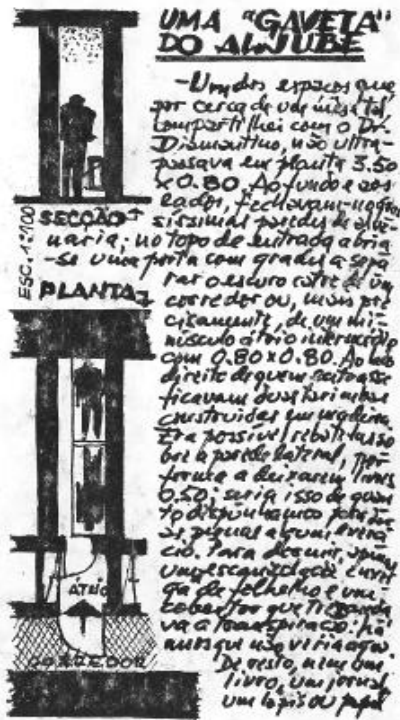 UMA "GAVETA"
DO ALJUBE
-Um dos espaços que,
por cerca de um mês e tal
compartilhei com o Dr.
Diamantino, não ultra-
passava em planta 3.50
x 0.80. Ao fundo e aos
lados, fechavam-nos
síssimas paredes de alve-
naria; no topo de entrada abria
-se uma porta com grades a sepa
rar o escuro cofre de um
corredor ou, mais pre
cisamente, de um mi-
núsculo átrio intermédio
com 0.80 x 0.80. Ao lado
direito de quem entrasse
ficavam duas tarimbas
construídas em madeira.
Era possível rebatê-las so
bre a parede lateral, por
forma a deixarem livres
0.50; seria isso de quan
to dispunhamos para
as pernas a algum exercí
cio. Para dormir,
um enxerga
de folhelho e um
cobertor que
va a transpiração: há
muito que não via água.
De resto, nem um
livro, um jornal
um lápis ou papel
SECÇÃO
ESC. 1:100
PLANTA
ÁTRIO
CORREDOR